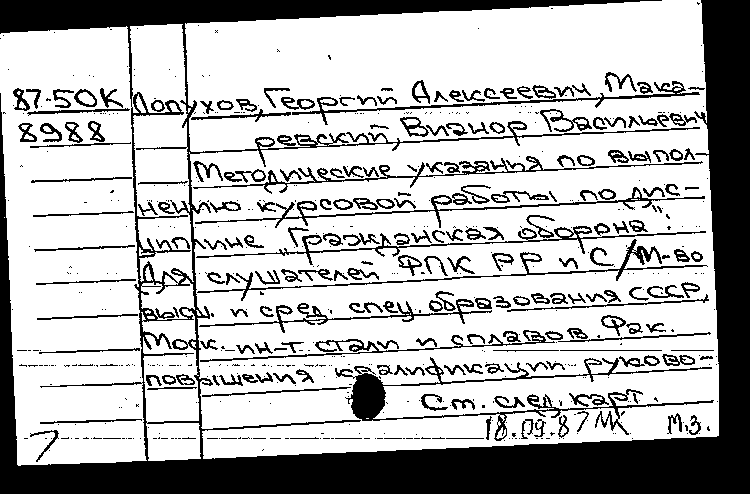 87-50К Лопухов, Георгий Алексеевич, Мака-
8988 ревский, Вианор Васильевич
Методические указания по выпол-
нению курсовой работы по дис-
циплине „Гражданская оборона":
Для слушателей ФПК РР и С / М-во
высш. и сред. спец. образования СССР,
Моск. ин-т стали и сплавов. Фак.
повышения квалификации руково-
Ст. след. карт.
18.09.87 МК м.з.